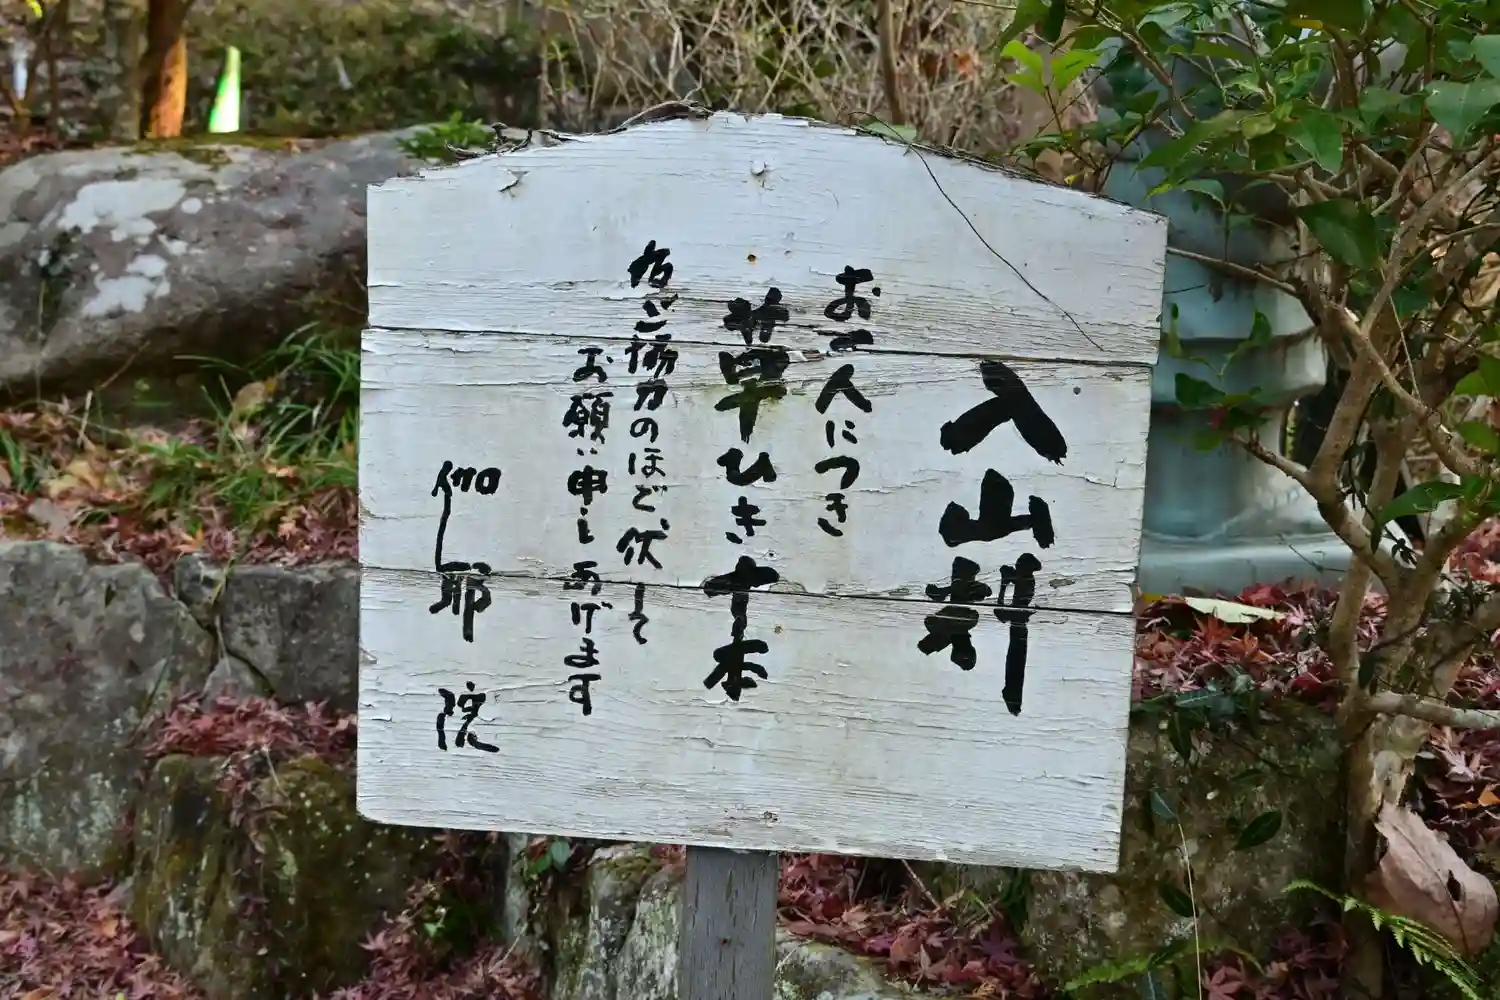 入山料
お一人につき
草ひき十本
右ご協力のほど伏して
お願い申し あげます
伽耶院